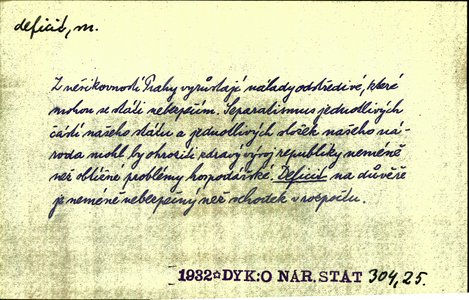 deficit, m.
Z nešikovnosti Prahy vyrůstají nálady odstředivé, které
mohou se státi nebezpečím. Separatismus jednotlivých
částí našeho státu a jednotlivých složek našeho ná-
roda mohl by ohroziti zdravý vývoj republiky neméně
než obtížné problémy hospodářské. Deficit na důvěře
je neméně nebezpečný než schodek v rozpočtu.
1932 DYK: O NÁR. STÁT 304,25.